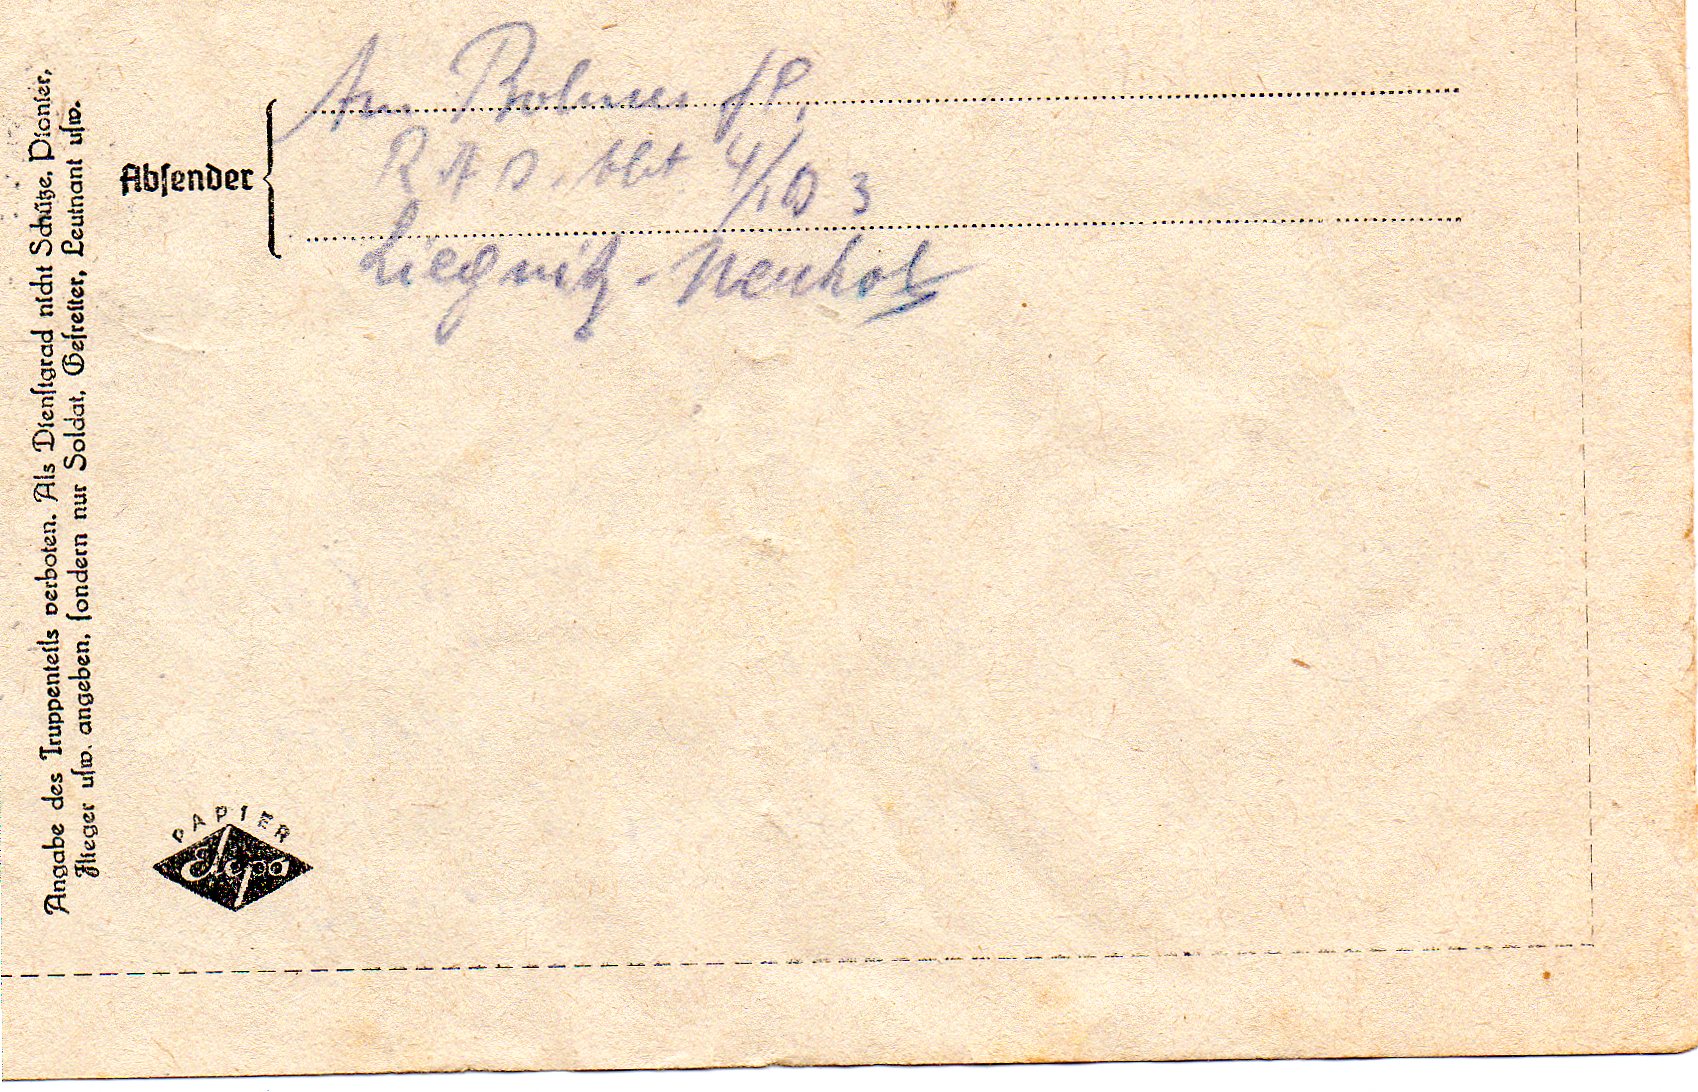 Angabe des Truppenteils verboten. Als Dienstgrad nicht Schütze, Pionier,
Flieger usw. angeben, sondern nur Soldat, Gefreiter, Leutnant usw.
Absender
R A D. Abt 4/103
Liegnitz - Neuhof
PAPIER
Elepa